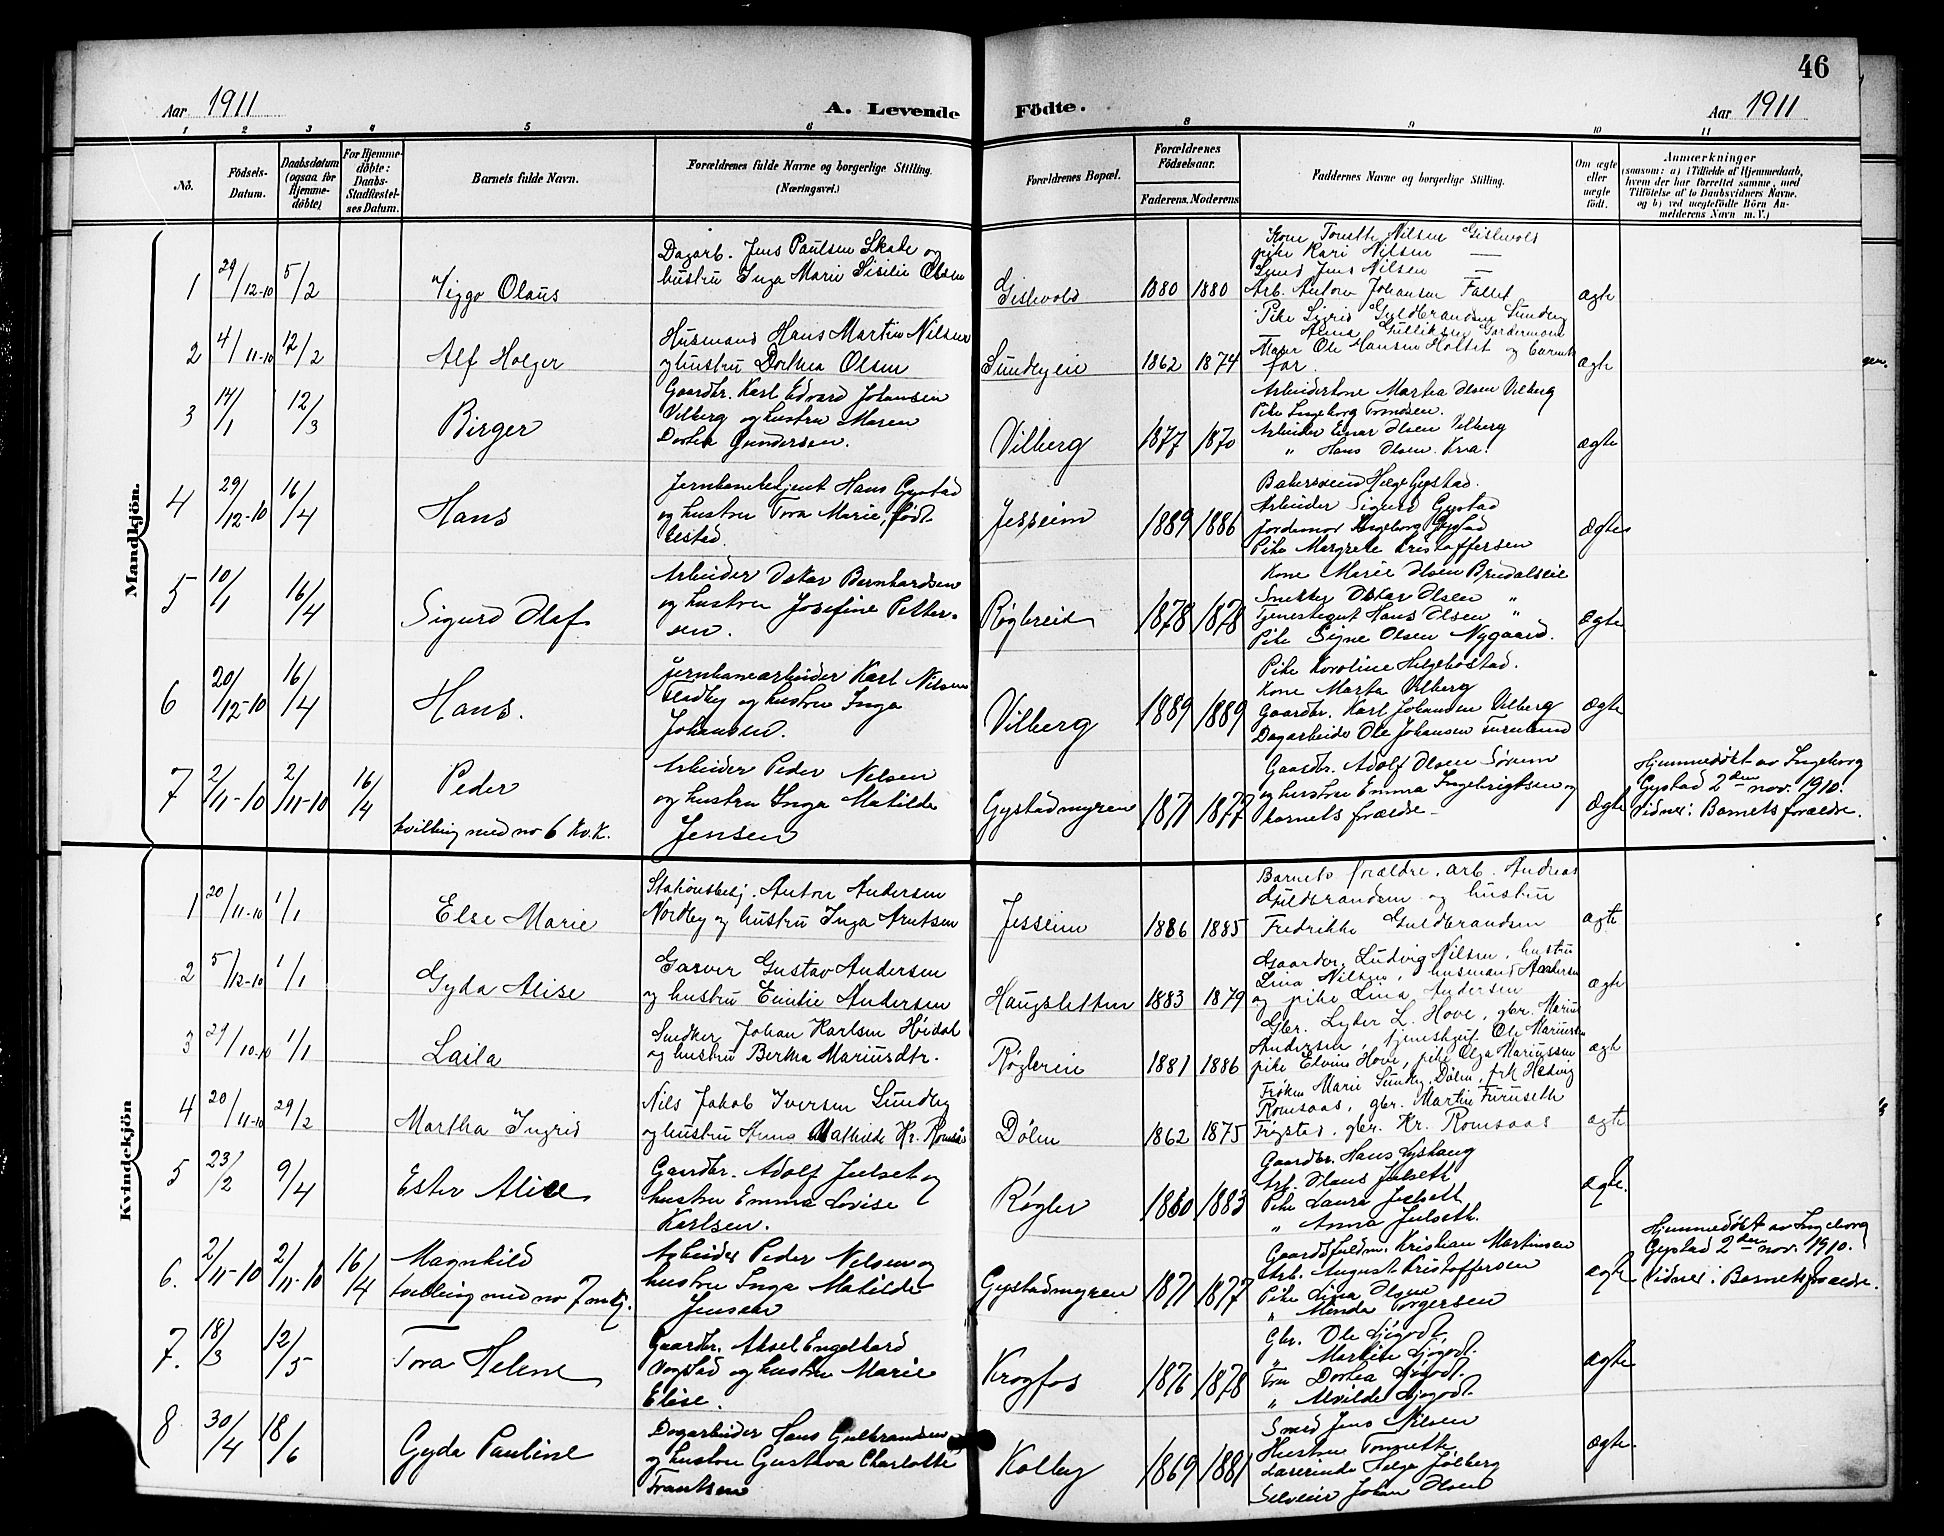 46
Aar 1911
A. Levende
Födte.
Aar 1911
1 2 3 4 5 6 8 9 10 11
No.
Födsels-
Datum.
Daabsdatum
(ogsaa for
Hjemme-
döbte)
For Hjemme-
döbte:
Daabs-
Stadfæstel-
ses Datum.
Barnets fulde Navn.
Forældrenes fulde Navne og borgerlige Stilling.
(Næringsvei.)
Forældrenes Bopæl.
Forældrenes
Födselsaar.
Faderens. Moderens
Faddernes Navne og borgerlige Stilling.
Om ægte
eller
uægte
født.
Anmærkninger
(saasom: a) i Tilfælde af Hjemmedaab,
hvem der har forrettet samme, med
Tilföielse af to Daabsvidners Navne.
og b) ved uægtefödte Börn An-
melderens Navn m.V.)
Mandkjön.
1 29/12-10 5/2 Viggo Olaus
Dagarb. Jens Paulsen Skade og
hustru Inga Marie Sisilie Olsen
Gislevold 1880 1880
Kone Tonette Nilsen Gislevold
pike Kari Nilsen —
Smed Jens Nilsen —
Arb. Anton Johansen Fallet
ægte
2 4/11-10 12/2 Alf Holger
Husmand Hans Martin Nilsen
og hustru Dorthea Olsen
Sundbyeie 1862 1874
Pike Sigrid Guldbrandsen Sundby
Anna Gulliksen Gardermoen
Maler Ole Hansen Holtet og barnets
far.
ægte
3 14/1 12/3 Birger
Gaardbr. Karl Edvard Johansen
Vilberg og hustru Maren
Dorthea Gundersen.
Vilberg 1877 1870
Arbeiderkone Martea Olsen Vilberg
Pike Ingeborg Tomdsen.
Arbeider Einar Olsen Vilberg
" Hans Olsen Kra.
ægte
4 29/12-10 16/4 Hans
Jernbanebetjent Hans Gystad
og hustru Tora Marie, født
Elstad.
Jesseim 1889 1886
Bakersvend Helge Gystad.
Arbeider Sigurd Gystad
Jordemor Ingeborg Gystad
Pike Margrete Kristoffersen
Ægte
5 10/1 16/4 Sigurd Olaf
Arbeider Oskar Bernhardsen
og hustru Josefine Petter-
sen.
Røglereie 1878 1878
Kone Marie Olsen Brudalseie
Snekker Oskar Olsen "
Tjenestegut Hans Olsen "
Pike Signe Olsen Nygaard.
Ægte
6 20/12-10 16/4 Hans.
Jernbanearbeider Karl Nilsen
Fladby og hustru Inga
Johansen.
Vilberg 1889 1889
Pike Karoline Helgebostad.
Kone Marta Vilberg
Gaardbr. Karl Johansen Vilberg
Dagarbeider Ole Johansen Furulund
Ægte
7 2/11-10 2/11-10 16/4 Peder
tvilling med no 6 Kv.K.
Arbeider Peder Nelsen
og hustru Inga Matilde
Jensen
Gystadmyren 1871 1877
Gaardbr. Adolf Olsen Sørum
og hustru Emma Ingebrigtsen og
barnets forældre —
Ægte
Hjemmedøbt av Ingeborg
Gystad 2den nov. 1910.
Vidner: Barnets forældre.
Kvindekjön
1 20/11-10 1/1 Else Marie
Stationsbetj. Anton Andersen
Nordby og hustru Inga Arntsen
Jesseim 1886 1885
Barnets forældre, arb. Andreas
Guldbrandsen og hustru
Fredrikke Guldbrandsen
ægte
2 5/12-10 1/1 Gyda Alise
Garver Gustav Andersen
og hustru Emilie Andersen
Haugsletten 1883 1879
Gaardbr. Ludvig Nilsen, hustru
Lina Nilsen, husmand Andersen
og pike Lina Andersen
ægte
3 29/10-10 1/1 Laila
Snedker Johan Karlsen Höidal
og hustru Bertha Mariusdtr.
Røglereie 1881 1886
Gbr. Lyder L. Hove, gbr. Marius
Andersen, Tjenestegut Ole Mariussen
pike Elvine Hove, pike Olga Mariussen
ægte
4 20/11-10 29/2 Martha Ingrid
Nils Jakob Iversen Sundby
og hustru Anna Mathilde Kr. Romsaas
Dølen 1862 1875
Frøken Marie Sundby, Dølen, frk Hedvig
Romsaas, gbr. Martin Furuseth
Frøystad, gbr. Kr. Romsaas
ægte
5 23/2 9/4 Ester Alice
Gaardbr. Adolf Julset og
hustru Emma Lovise
Karlsen.
Røgler 1880 1883
Gaardbr. Hans Lyshaug
Arb. Olaus Julseth
Pike Laura Julseth
" Anna Julseth.
Ægte.
6. 2/11-10 2/11-10 16/4 Magnhild
tvilling med no 7 m.kj.
Arbeider Peder Nelsen og
hustru Inga Matilde
Jensen
Gystadmyren 1871 1877
Gaardsfuldm. Kristian Martinsen
Arb. August Kristoffersen
Pike Lina Olsen
" Minda Torgersen
Ægte
Hjemmedøbt av Ingeborg
Gystad 2den nov. 1910.
Vidner: Barnets forældre.
7. 18/3 12/5 Tora Helene
Gaardbr. Aksel Engelhard
Vogstad og hustru Marie
Elise.
Krogfos 1876 1878
Gbr. Ole Ljøgodt.
" Martin Ljøgodt.
Fru Dorthea Ljøgodt.
" Alvilde Ljøgodt.
Ægte
8 30/4 18/6 Gyda Pauline
Dagarbeider Hans Gulbrandsen
og hustru Gustava Charlotte
Frantsen
Kolby 1869 1881
Smed Jens Nilsen
Hustru Tonnette
Lærerinde Helga Jølberg
Selveier Johan Olsen
Ægte.